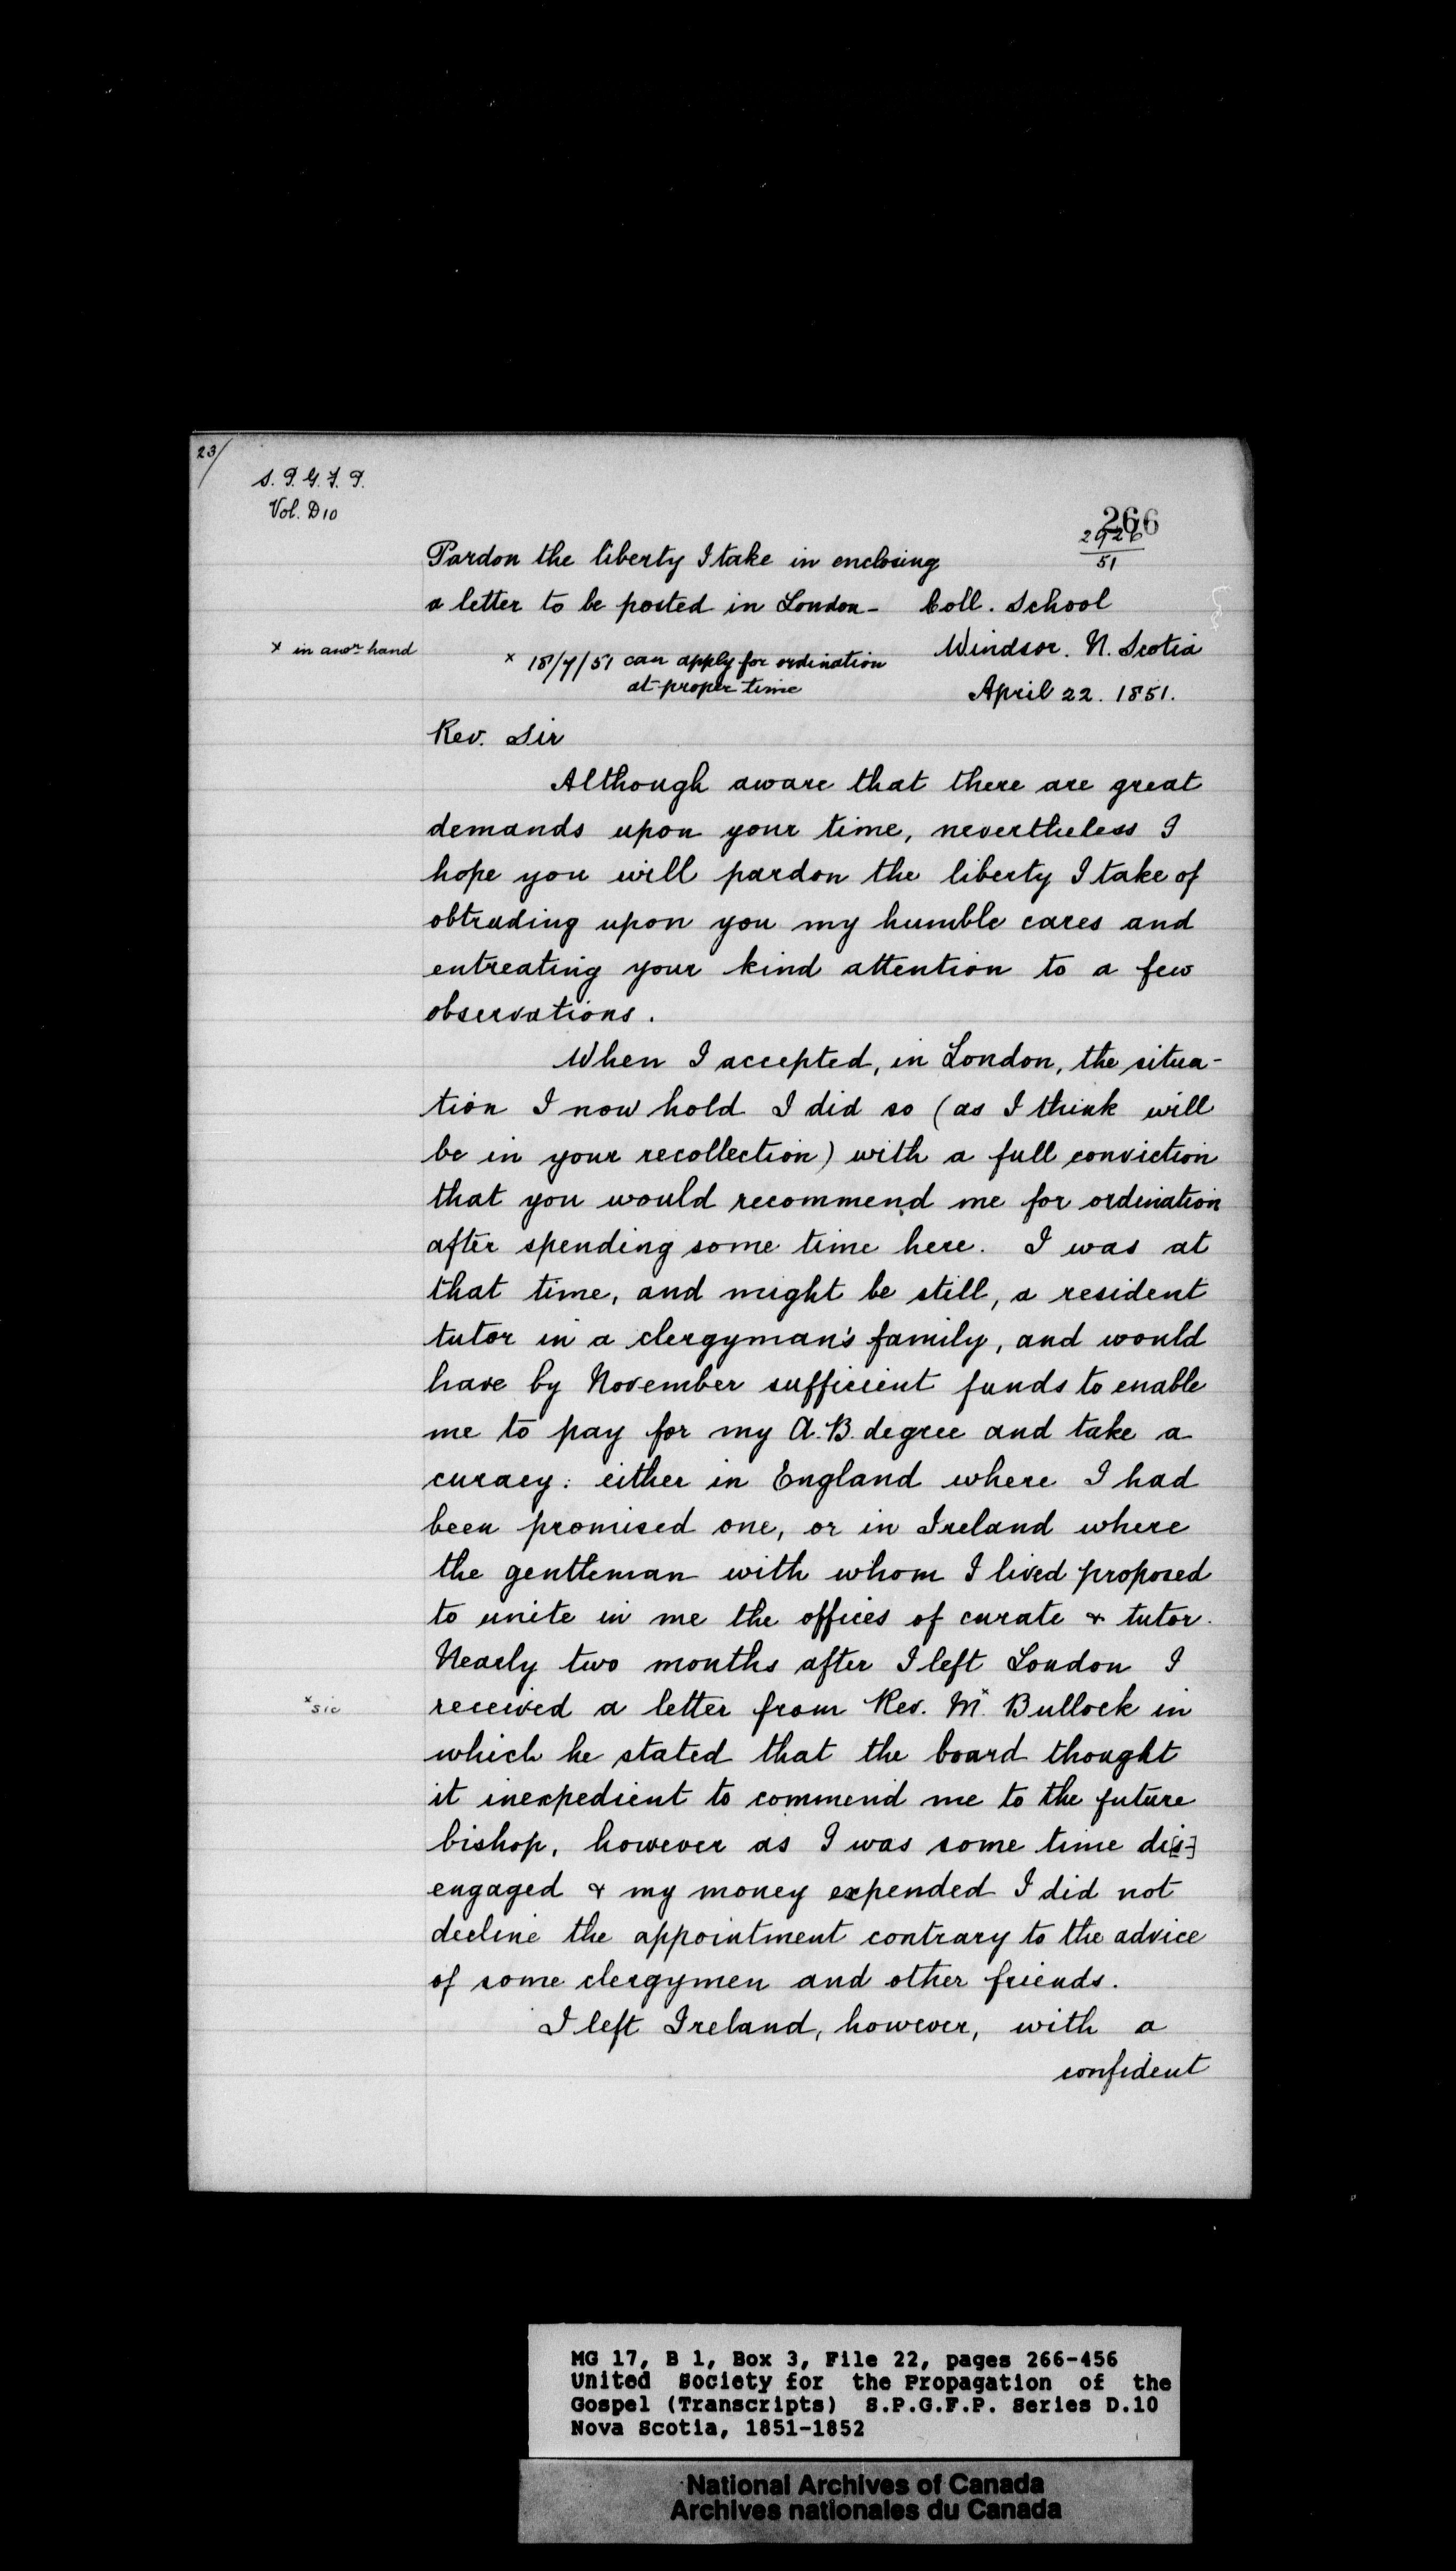 23/
S. P. G. F. P.
Vol. D 10
266
2926
51
Pardon the liberty I take in enclosing
a letter to be posted in London - Coll. School
Windsor. N. Scotia
x in anor hand
x 18/7/51 can apply for ordination
at proper time
April 22. 1851.
Rev. Sir
Although aware that there are great
demands upon your time, nevertheless I
hope you will pardon the liberty I take of
obtruding upon you my humble cares and
entreating your kind attention to a few
observations.
When I accepted, in London, the situa-
tion I now hold I did so (as I think will
be in your recollection) with a full conviction
that you would recommend me for ordination
after spending some time here. I was at
that time, and might be still, a resident
tutor in a clergyman's family, and would
have by November sufficient funds to enable
me to pay for my A.B. degree and take a
curacy: either in England where I had
been promised one, or in Ireland where
the gentleman with whom I lived proposed
to unite in me the offices of curate & tutor.
Nearly two months after I left London I
x sic
received a letter from Rev. M.x Bullock in
which he stated that the board thought
it inexpedient to commend me to the future
bishop, however as I was some time dis[-]
engaged & my money expended I did not
decline the appointment contrary to the advice
of some clergymen and other friends.
I left Ireland, however, with a
confident
MG 17, B 1, Box 3, File 22, pages 266-456
United Society for the Propagation of the
Gospel (Transcripts) S.P.G.F.P. Series D.10
Nova Scotia, 1851-1852
National Archives of Canada
Archives nationales du Canada